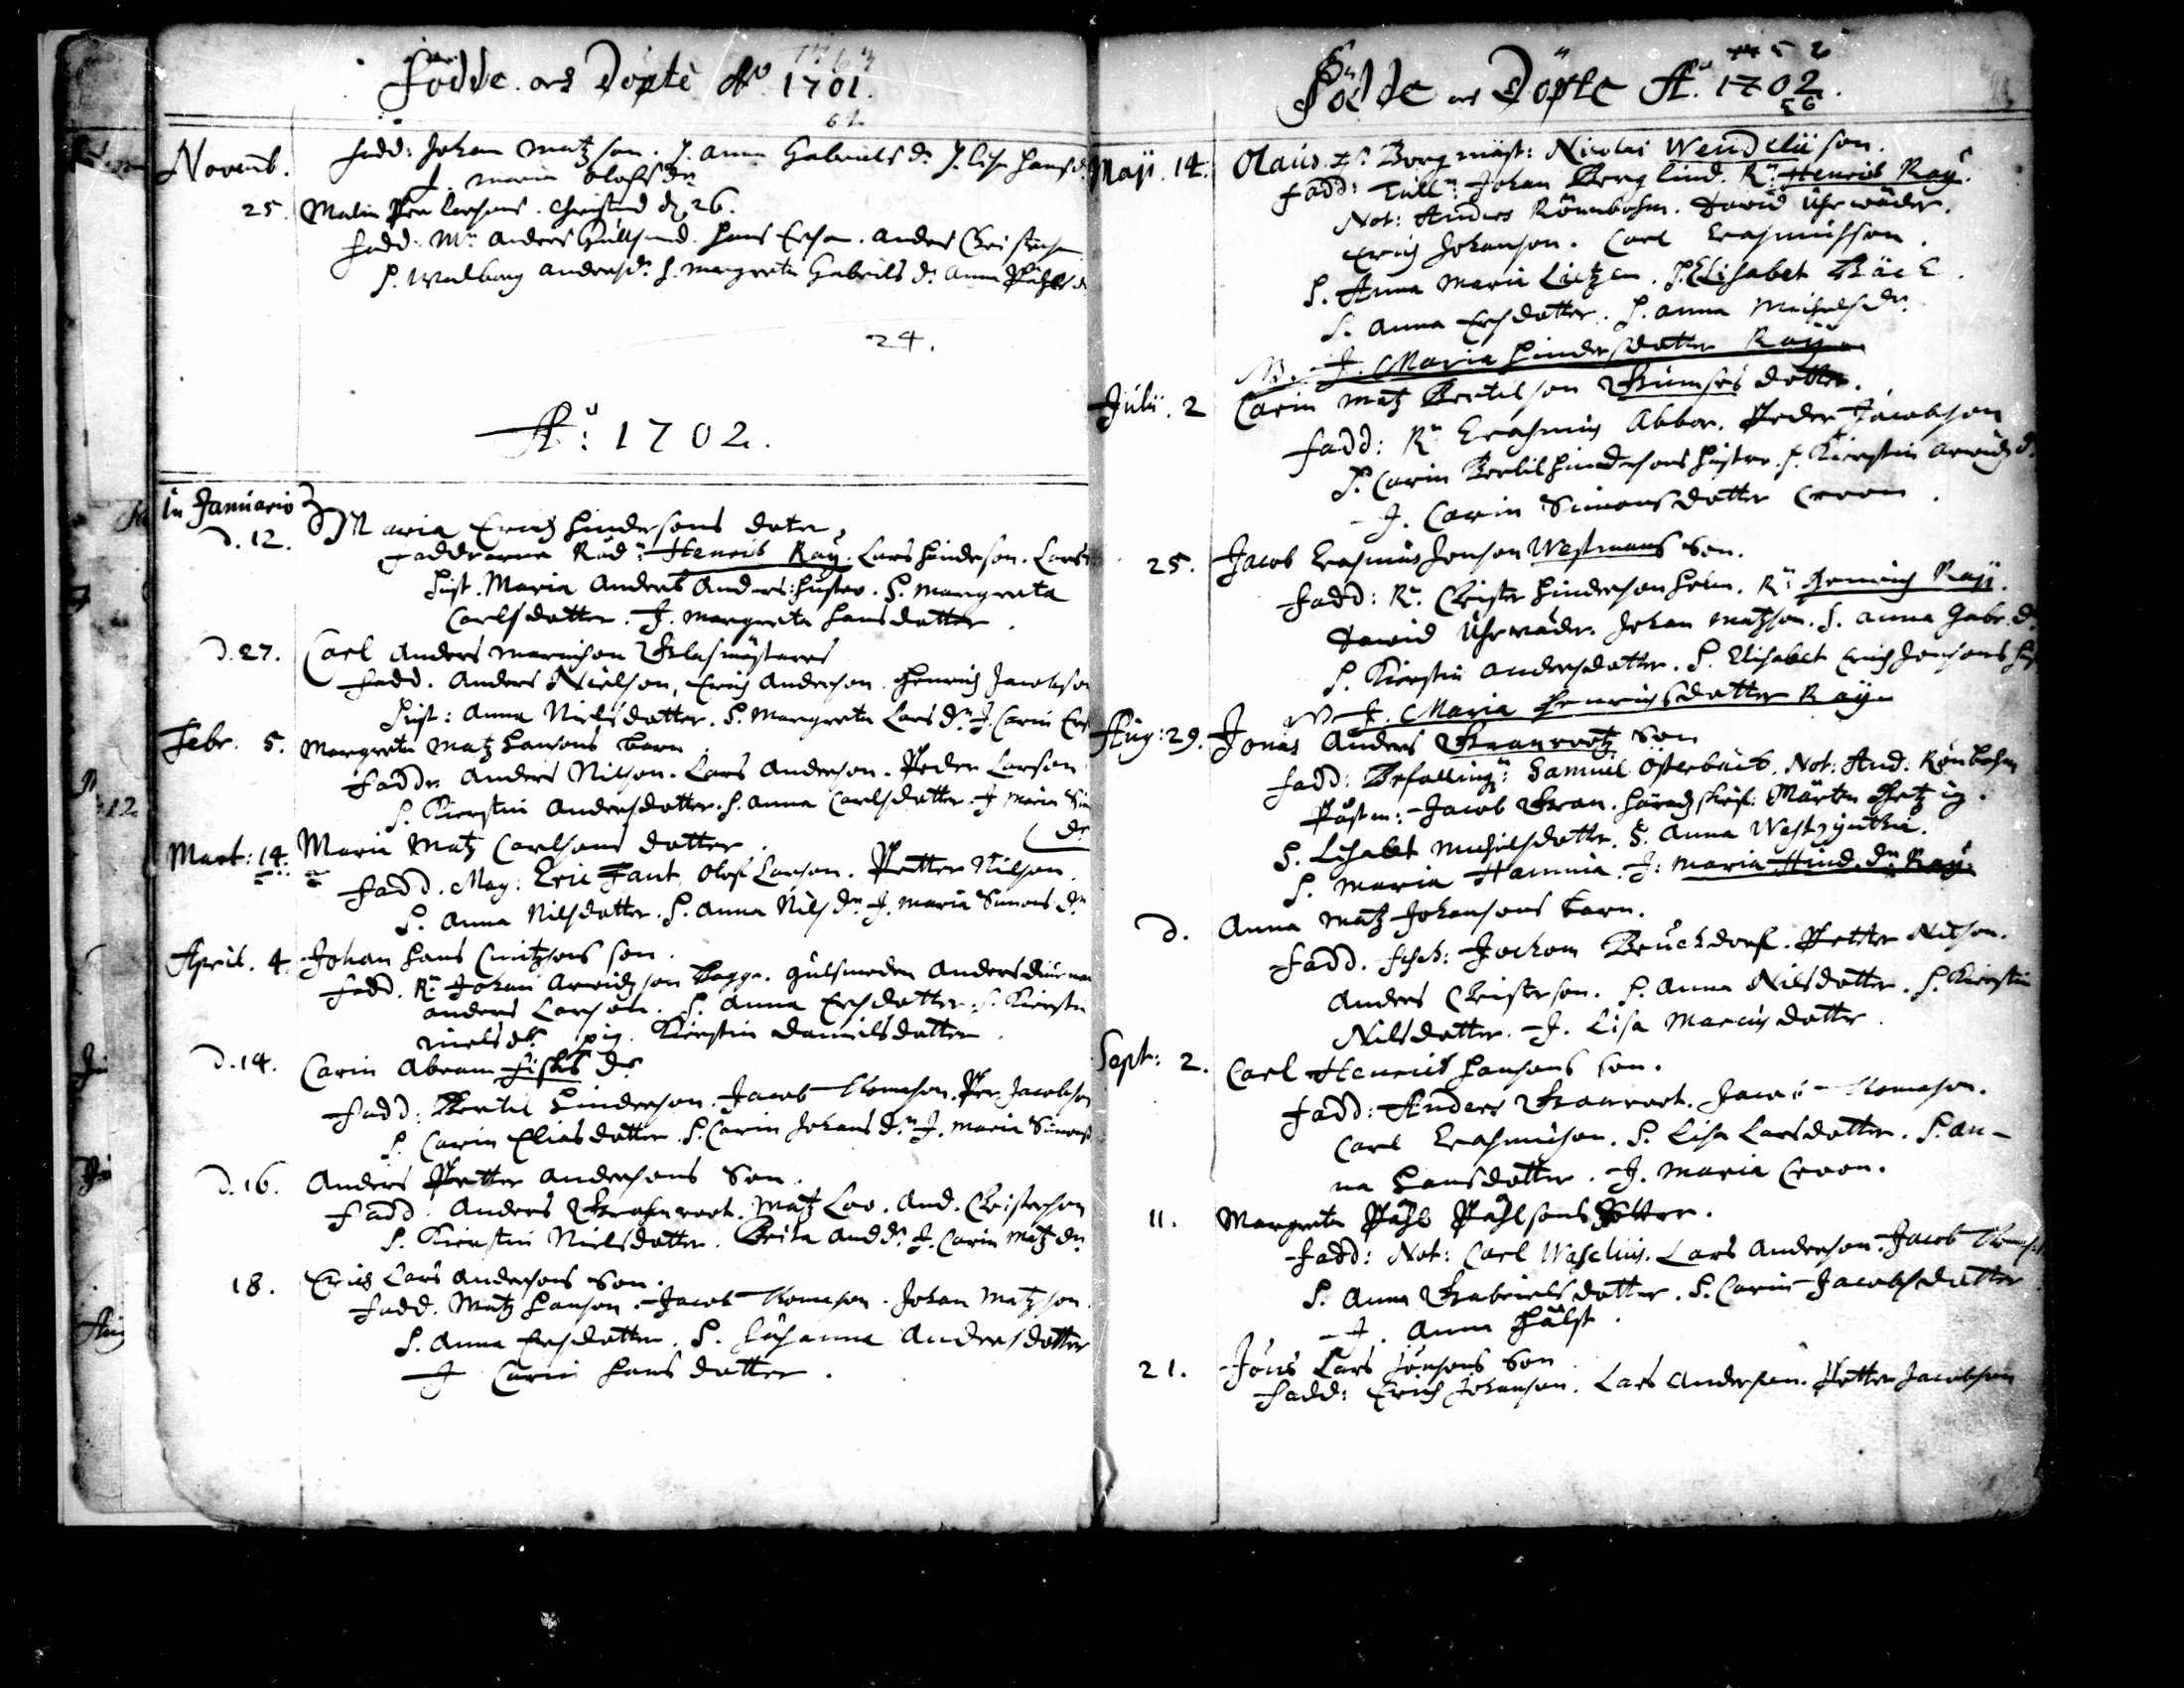 Födde och Döpte Aº 1701.
Novemb. fadd: Johan Matzson. H. Anna Gabriels dr. H. Lisa Hansdr
J. Maria Olofs dr
25. Malin Per Larsons. Christnad d. 26.
fadd: Mr Anders Gullsmed. Hans Erson. Anders Christerson
H. Walborg Andersdr. H. Margreta Gabriels dr. Anna Påhls dr
24.
Aº: 1702.
In Januario
d. 12. Maria Erich Hindersons doter
Faddrarna Råd: Henrik Raÿ. Lars Hinderson. Lars
Hust. Maria Anders Anders: hustro. H. Margreta
Carlsdotter. J. Margreta Hansdotter.
d. 27. Carl Anders Glasmästares
fadd. Anders Nielson, Erich Anderson. Henrich Jacobson
Hust: Anna Nielsdotter. H. Margreta Lars dr. J. Carin Ers
Febr. 5. Margreta Matz Hansons barn.
Faddr. Anders Nilson. Lars Anderson. Peder Larson
H. Kierstin Andersdotter. H. Anna Carlsdotter. J Maria Sim
dr
Mart: 14. Maria Matz Carlsons dotter.
fadd. Mag: Eric Fant. Olof Larson. Petter Nilson.
H. Anna Nilsdotter. H. Anna Nils dr. J. Maria Simons dr
April. 4. Johan Hans son.
fadd. Rn Johan Arvidzson Bagge. Gulsmeden Anders
Anders Larson. H. Anna Ersdotter. H. Kierstin
Niels dr. pig. Kierstin Danielsdotter.
d. 14. Carin Abram Fisks dr
fadd: Bertil Hinderson. Jacob Thomeson. Per Jacobson
H. Carin Eliasdotter. H. Carin Johans dr. J. Maria Simons
d. 16. Anders Petter Andersons Son.
fadd. Anders. Matz Loo. And. Christerson
H. Kierstin Nielsdotter. Brita And dr. J. Carin Matz dr
18. Erich Lars Andersons Son.
fadd. Matz Hanson. Jacob Thomeson. Johan Matzson.
H. Anna Ersdotter. H. Susanna Andersdotter
J Carin Hansdotter.
Födde och Döpte Aº. 1702.
56
Maji. 14. Olaus Borgmäst: Nicolai Wendelii son.
fadd: Tulln: Johan Berglind. Rn: Henrik Raÿ.
Not: Anders Rönbohm. David Uhrwäder.
Erich Johanson. Carl Erasmusson.
H. Anna Maria Lietzen. H. Elisabet Bäck.
H. Anna Ersdotter. H. Anna Michels dr.
J. Maria Hindersdotter Raÿ
Julii. 2 Carin Matz Bertilson dotter.
fadd: Rn Erasmus Abbor. Peder Jacobson
H. Carin Bertil Hindersons hustro. H. Kierstin Arvidz dr
J. Carin Simonsdotter Croon.
25. Jacob Erasmus Jonson Westmans Son.
fadd: Rn. Christer Hinderson Holm. Rn: Henrich Raÿ.
David Uhrwäder. Johan Matzson. H. Anna Gabr. dr
H. Kierstin Andersdotter. H. Elisabet Erich Jonsons hust
J. Maria Henrichsdotter Raÿ
Aug: 29. Jonas Anders son
fadd: Befallning: Samuel Österback. Not: And: Rönbohm
Påstm: Jacob Gran. Häradz skrif: Mårten
H. Lisabet Michilsdotter. H. Anna Westzynthia.
H. Maria Hamnia. J: Maria Hind. dr Raÿ.
d. Anna Matz Johansons barn.
fadd. Jochom Brückdorf. Petter Nilson.
Anders Christerson. H. Anna Nilsdotter. H. Kierstin
Nilsdotter. J. Lisa Marcusdotter.
Sept: 2. Carl Henrich Hansons Son.
fadd: Anders. Jacob Thomeson.
Carl Erasmuson. H. Lisa Larsdotter. H. An-
na Hansdotter. J. Maria Croon.
11. Margreta Påhl Påhlsons dotter.
fadd: Not: Carl Waselius. Lars Anderson. Jacob Thomeson
H. Anna Gabrielsdotter. H. Carin Jacobsdotter
J. Anna Hälst.
21. Jöns Lars Jönsons Son.
fadd: Erich Johanson. Lars Anderson. Petter Jacobson